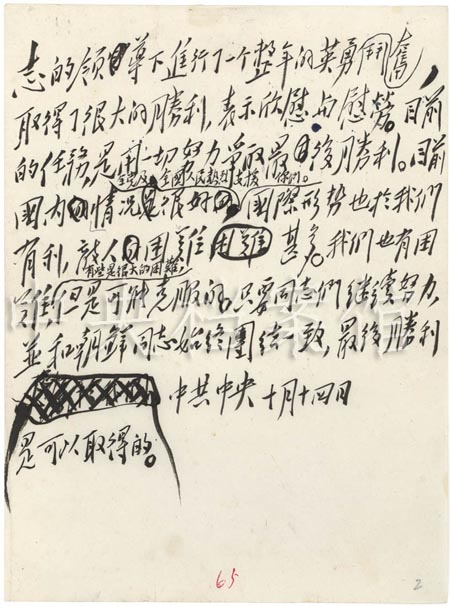 志的领导下進行了一个整年的英勇鬥奮,
取得了很大的勝利,表示欣慰与慰勞。目前
的任務,是用一切努力爭取最後勝利。目前
全党及全國人民熱烈支援你们。
國内情况是很好,國際形勢也於我們
有利,敵人困難困難甚多。我們也有困
有些是很大的困難,
難,但是可能克服的。只要同志們继續努力,
並和朝鮮同志始終團結一致,最後勝利
中共中央 十月十四日
是可以取得的。
中央档案馆
65
2